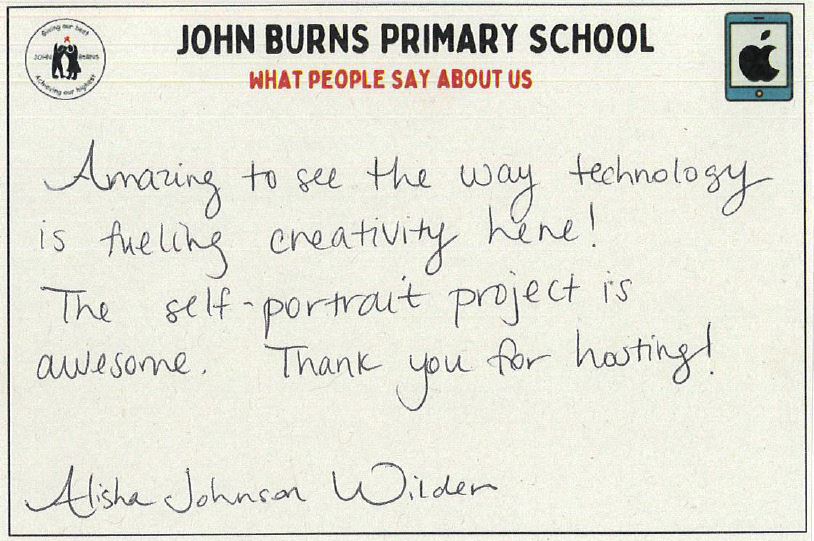 Giving our best
JOHN BURNS
Achieving our highest
JOHN BURNS PRIMARY SCHOOL
WHAT PEOPLE SAY ABOUT US
Amazing to see the way technology
is fueling creativity here!
The self-portrait project is
awesome. Thank you for hosting!
Alisha Johnson Wilder